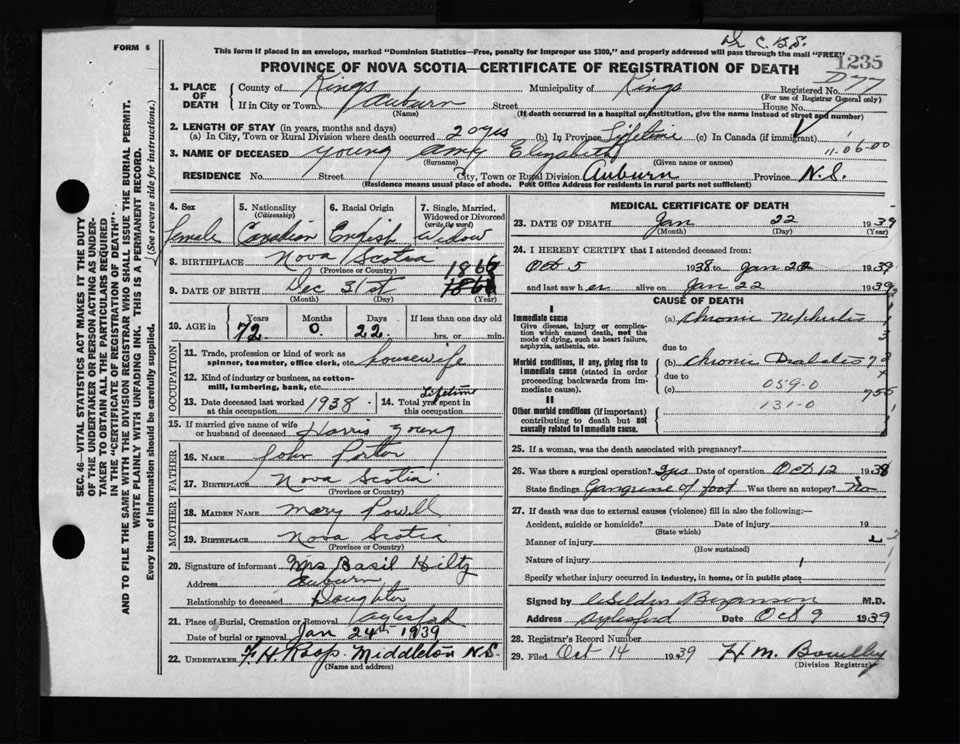 FORM 6
This form if placed in an envelope, marked "Dominion Statistics—Free, penalty for improper use $300," and properly addressed will pass through the mail "FREE"
Dr C. B. S.
1235
PROVINCE OF NOVA SCOTIA—CERTIFICATE OF REGISTRATION OF DEATH
D77
1. PLACE OF DEATH
County of Kings Municipality of Kings Registered No.
(For use of Registrar General only)
If in City or Town Auburn Street House No.
(Name) (If death occurred in a hospital or institution, give the name instead of street and number)
2. LENGTH OF STAY (in years, months and days)
(a) In City, Town or Rural Division where death occurred 20 yrs (b) In Province Lifetime (c) In Canada (if immigrant)
11-06-00
3. NAME OF DECEASED Young Amy Elizabeth
(Surname) (Given name or names)
RESIDENCE No. Street City, Town or Rural Division Auburn Province N.S.
(Residence means usual place of abode. Post Office Address for residents in rural parts not sufficient)
4. Sex
Female
5. Nationality
(Citizenship)
Canadian
6. Racial Origin
English
7. Single, Married, Widowed or Divorced
(write the word)
Widow
8. BIRTHPLACE Nova Scotia
(Province or Country)
1866
9. DATE OF BIRTH Dec 31st
(Month) (Day) (Year)
10. AGE in
Years Months Days If less than one day old
72 0 22 hrs. or min.
OCCUPATION
11. Trade, profession or kind of work as spinner, teamster, office clerk, etc. Housewife
12. Kind of industry or business, as cotton-mill, lumbering, bank, etc.
13. Date deceased last worked at this occupation 1938
14. Total yrs. spent in this occupation Lifetime
15. If married give name of wife or husband of deceased Harris Young
FATHER
16. NAME John Porter
17. BIRTHPLACE Nova Scotia
(Province or Country)
MOTHER
18. MAIDEN NAME Mary Powell
19. BIRTHPLACE Nova Scotia
(Province or Country)
20. Signature of informant Mrs Basil Hiltz
Address Auburn
Relationship to deceased Daughter
21. Place of Burial, Cremation or Removal Aylesford
Date of burial or removal Jan 24th 1939
22. UNDERTAKER F. H. Roop. Middleton N.S.
(Name and address)
MEDICAL CERTIFICATE OF DEATH
23. DATE OF DEATH Jan 22 1939
(Month) (Day) (Year)
24. I HEREBY CERTIFY that I attended deceased from:
Oct 5 1938 to Jan 22 1939
and last saw her alive on Jan 22 1939
CAUSE OF DEATH
I
Immediate cause
Give disease, injury or complication which caused death, not the mode of dying, such as heart failure, asphyxia, asthenia, etc.
(a) Chronic Nephritis
due to
Morbid conditions, if any, giving rise to immediate cause (stated in order proceeding backwards from immediate cause).
(b) Chronic Diabetes
due to
(c) 059-0
II
131-0
Other morbid conditions (if important) contributing to death but not causally related to immediate cause.
25. If a woman, was the death associated with pregnancy?
26. Was there a surgical operation? Yes Date of operation Oct 12 1938
State findings Gangrene of foot Was there an autopsy? No
27. If death was due to external causes (violence) fill in also the following:—
Accident, suicide or homicide? Date of injury 19
(State which)
Manner of injury
(How sustained)
Nature of injury
Specify whether injury occurred in industry, in home, or in public place
Signed by M.D.
Address Aylesford Date Oct 9 1939
28. Registrar's Record Number
29. Filed Oct 14 1939 H. M.
(Division Registrar)
SEC. 46—VITAL STATISTICS ACT MAKES IT THE DUTY
OF THE UNDERTAKER OR PERSON ACTING AS UNDER-
TAKER TO OBTAIN ALL THE PARTICULARS REQUIRED
IN THE "CERTIFICATE OF REGISTRATION OF DEATH",
AND TO FILE THE SAME WITH THE DIVISION REGISTRAR WHO SHALL ISSUE THE BURIAL PERMIT.
WRITE PLAINLY WITH UNFADING INK. THIS IS A PERMANENT RECORD.
Every item of Information should be carefully supplied. (See reverse side for instructions.)